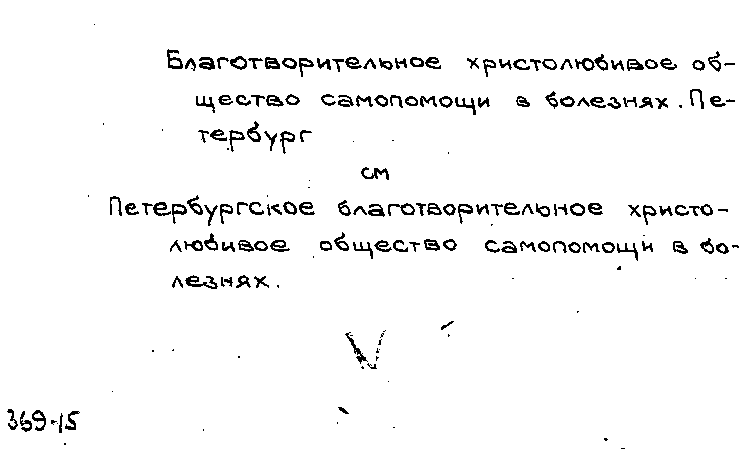 Благотворительное христолюбивое об-
щество самопомощи в болезнях. Пе-
тербург
см
Петербургское благотворительное христо-
любивое общество самопомощи в бо-
лезнях.
369-15